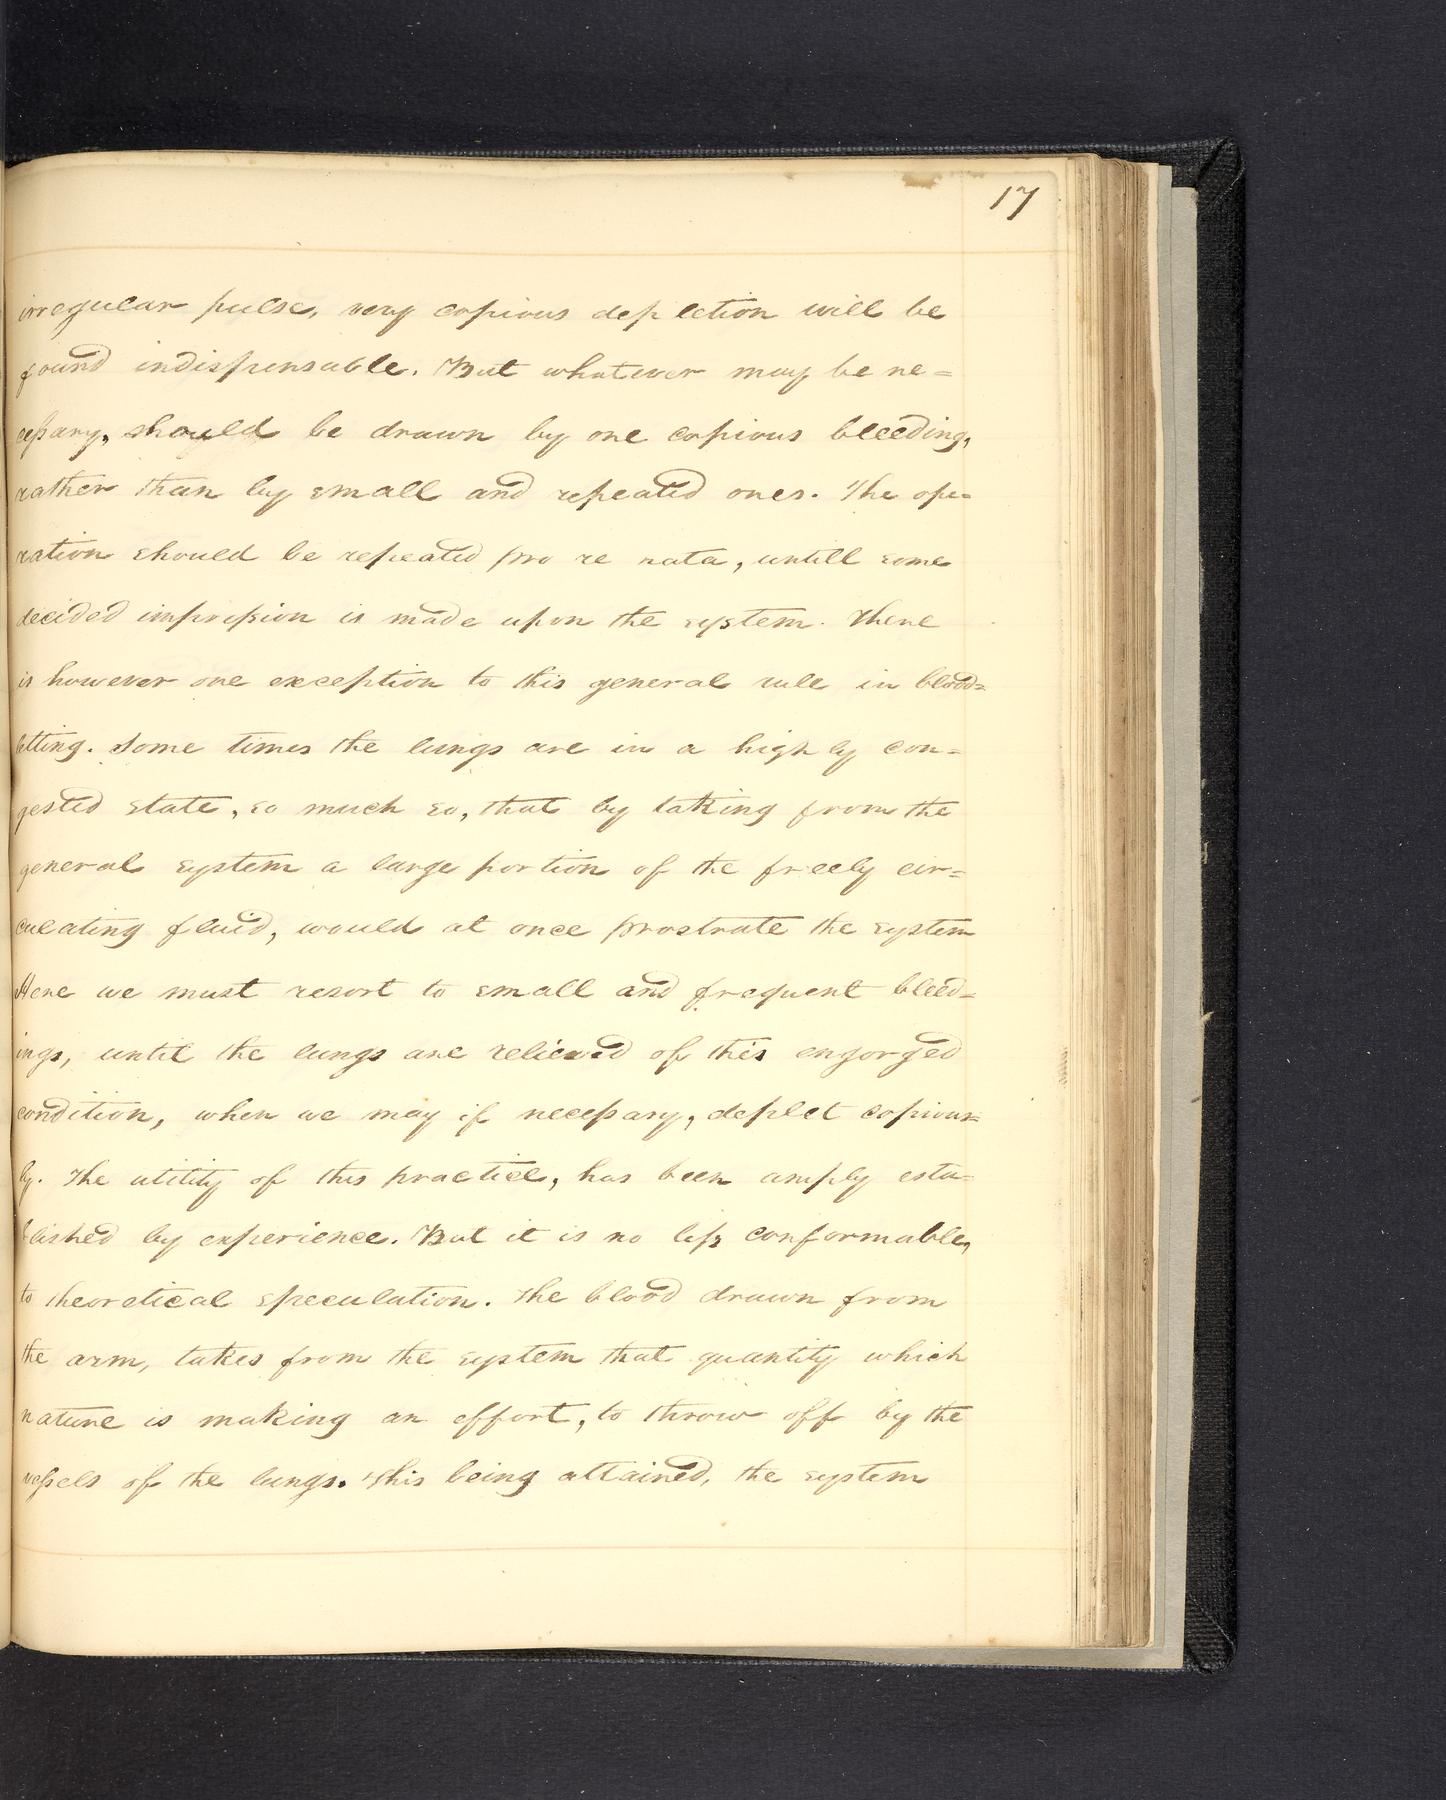 17
irregular pulse, very copious depletion will be
found indispensable. But whatever may be ne=
cessary, should be drawn by one copious bleeding,
rather than by small and repeated ones. The ope=
ration should be repeated pro re nata, untill some
decided impression is made upon the system. There
is however one exception to this general rule in blood=
letting. Some times the lungs are in a highly con=
gested state, so much so, that by taking from the
general system a large portion of the freely cir=
culating fluid, would at once prostrate the system
Here we must resort to small and frequent bleed=
ings, until the lungs are relieved of this engorged
condition, when we may if necessary, deplet copious=
ly. The utility of this practice, has been amply esta=
blished by experience. But it is no less conformable,
to theoretical speculation. The blood drawn from
the arm, takes from the system that quantity which
nature is making an effort, to throw off by the
vessels of the lungs. This being attained, the system